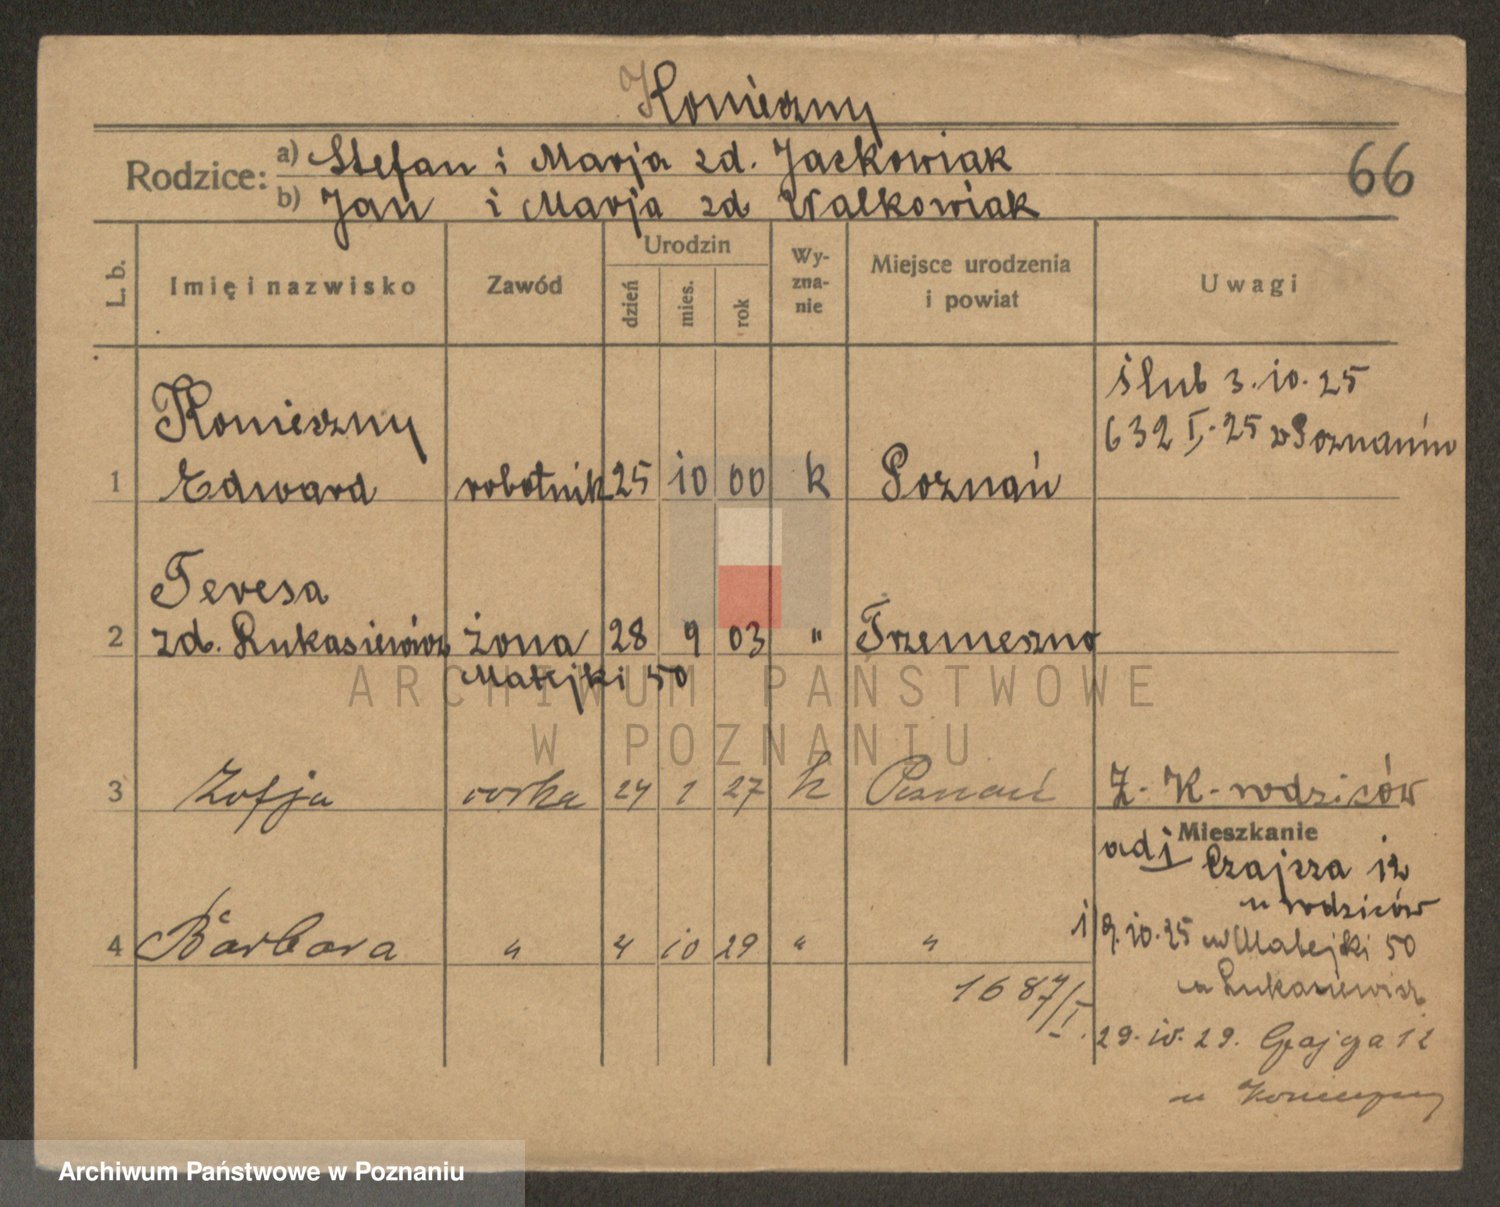 Konieczny
Rodzice: a) Stefan i Marja zd. Jackowiak
b) Jan i Marja zd Walkowiak
66
L. b. Imię i nazwisko Zawód Urodzin dzień mies. rok Wy-zna-nie Miejsce urodzenia i powiat Uwagi
ślub 3.10.25
632 I. 25 w Poznaniu
Konieczny
1 Edward robotnik 25 10 00 k Poznań
Teresa
2 zd. Łukasiewicz żona 28 9 03 " Trzemeszno
Matejki 50
ARCHIWUM PAŃSTWOWE
W POZNANIU
3 Zofja córka 24 1 27 k Poznań Z. K. rodziców
Mieszkanie
ad 1 Czajcza 12
u rodziców
4 Barbara " 4 10 29 " " i 9.10.25 Matejki 50
1687/I u Łukasiewicz
29.10.29. Czajcza 12
u Konieczny
Archiwum Państwowe w Poznaniu